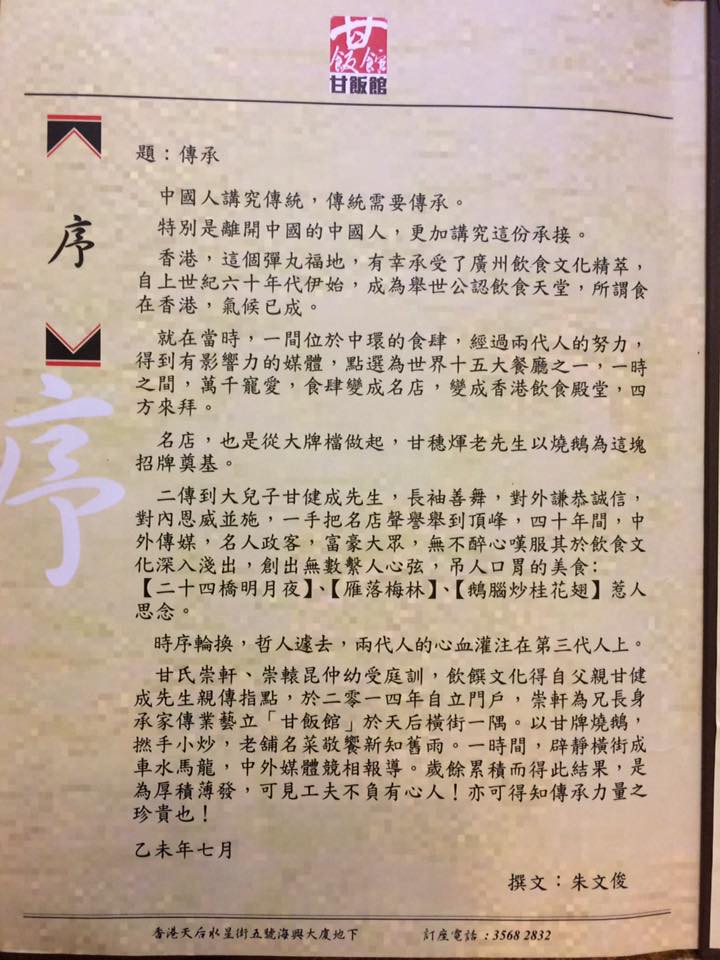 甘飯館
甘飯館
序
序
題：傳承
中國人講究傳統，傳統需要傳承。
特別是離開中國的中國人，更加講究這份承接。
香港，這個彈丸福地，有幸承受了廣州飲食文化精萃，
自上世紀六十年代伊始，成為舉世公認飲食天堂，所謂食
在香港，氣候已成。
就在當時，一間位於中環的食肆，經過兩代人的努力，
得到有影響力的媒體，點選為世界十五大餐廳之一，一時
之間，萬千寵愛，食肆變成名店，變成香港飲食殿堂，四
方來拜。
名店，也是從大牌檔做起，甘穗煇老先生以燒鵝為這塊
招牌奠基。
二傳到大兒子甘健成先生，長袖善舞，對外謙恭誠信，
對內恩威並施，一手把名店聲譽舉到頂峰，四十年間，中
外傳媒，名人政客，富豪大眾，無不醉心嘆服其於飲食文
化深入淺出，創出無數繫人心弦，吊人口胃的美食：
【二十四橋明月夜】、【雁落梅林】、【鵝腦炒桂花翅】惹人
思念。
時序輪換，哲人遽去，兩代人的心血灌注在第三代人上。
甘氏崇軒、崇轅昆仲幼受庭訓，飲饌文化得自父親甘健
成先生親傳指點，於二零一四年自立門戶，崇軒為兄長身
承家傳業藝立「甘飯館」於天后橫街一隅。以甘牌燒鵝，
撚手小炒，老舖名菜敬饗新知舊雨。一時間，辟靜橫街成
車水馬龍，中外媒體競相報導。歲餘累積而得此結果，是
為厚積薄發，可見工夫不負有心人！亦可得知傳承力量之
珍貴也！
乙未年七月
撰文：朱文俊
香港天后水星街五號海興大廈地下 訂座電話：3568 2832